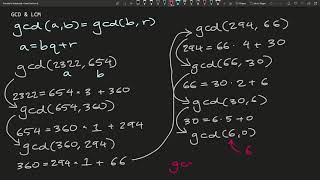 GCD & LCM
gcd(a,b)=gcd(b,r)
a=bq+r
gcd(2322,654)
a b
2322=654·3+360
gcd(654,360)
654=360·1+294
gcd(360,294)
360=294·1+66
gcd(294,66)
294=66·4+30
gcd(66,30)
66=30·2+6
gcd(30,6)
30=6·5+0
gcd(6,0)
6
gc